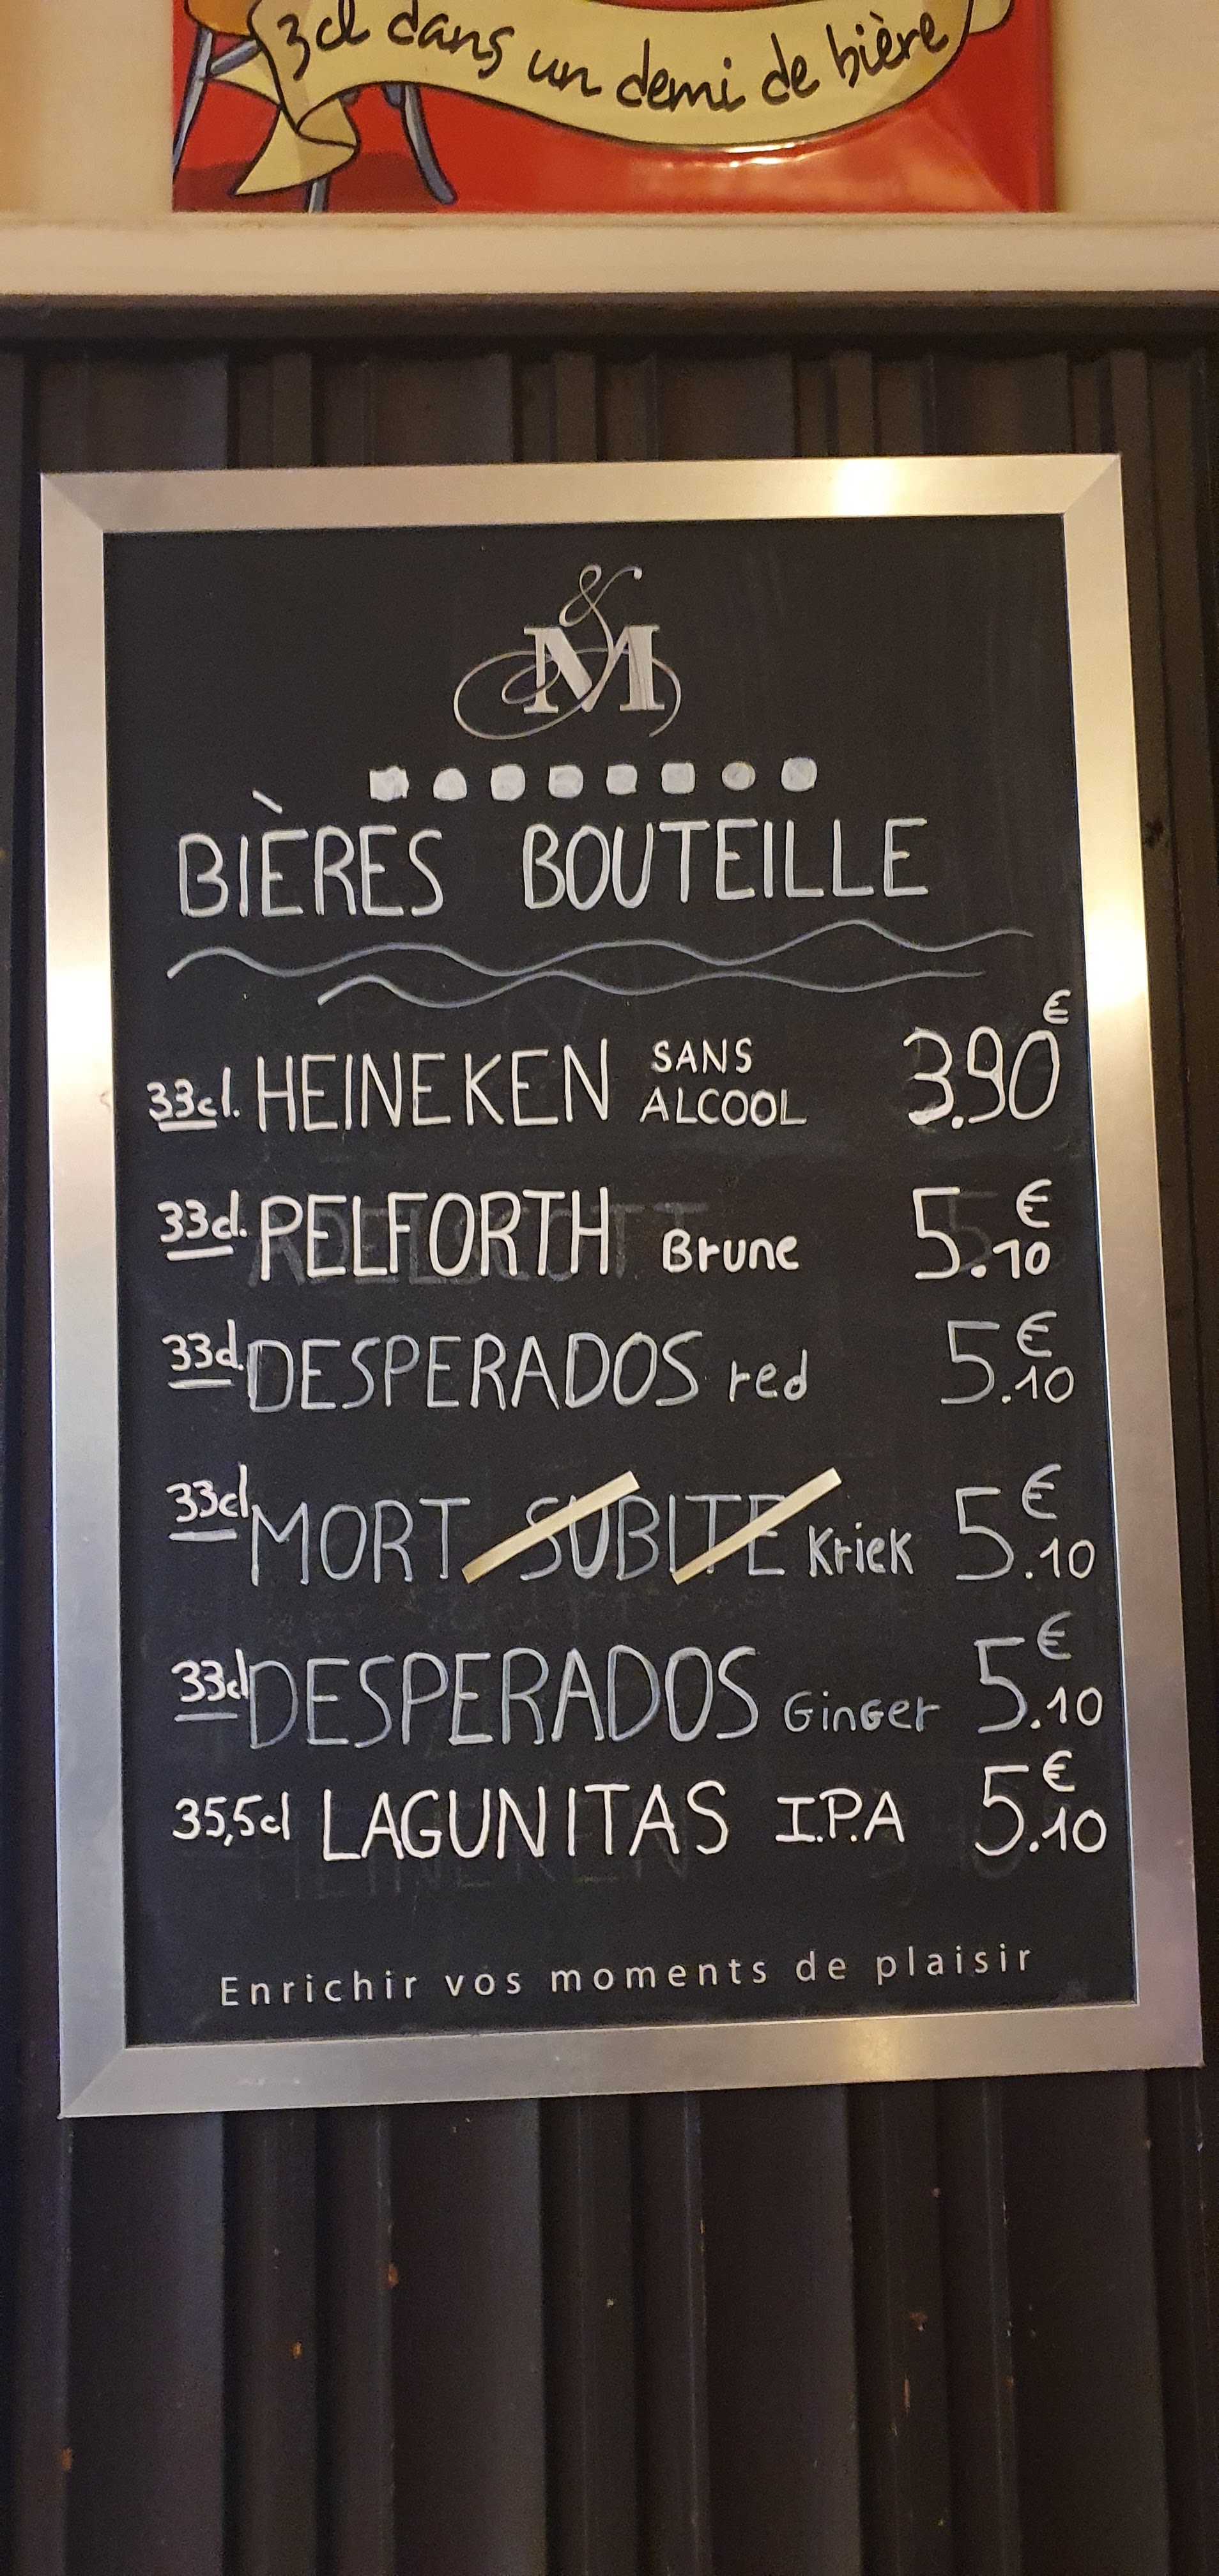 3cl dans un demi de bière
&M
BIÈRES BOUTEILLE
33cl. HEINEKEN SANS ALCOOL 3.90€
33cl. PELFORTH Brune 5.10€
33cl. DESPERADOS red 5.10€
33cl MORT SUBITE Kriek 5.10€
33cl DESPERADOS Ginger 5.10€
35,5cl LAGUNITAS I.P.A 5.10€
Enrichir vos moments de plaisir